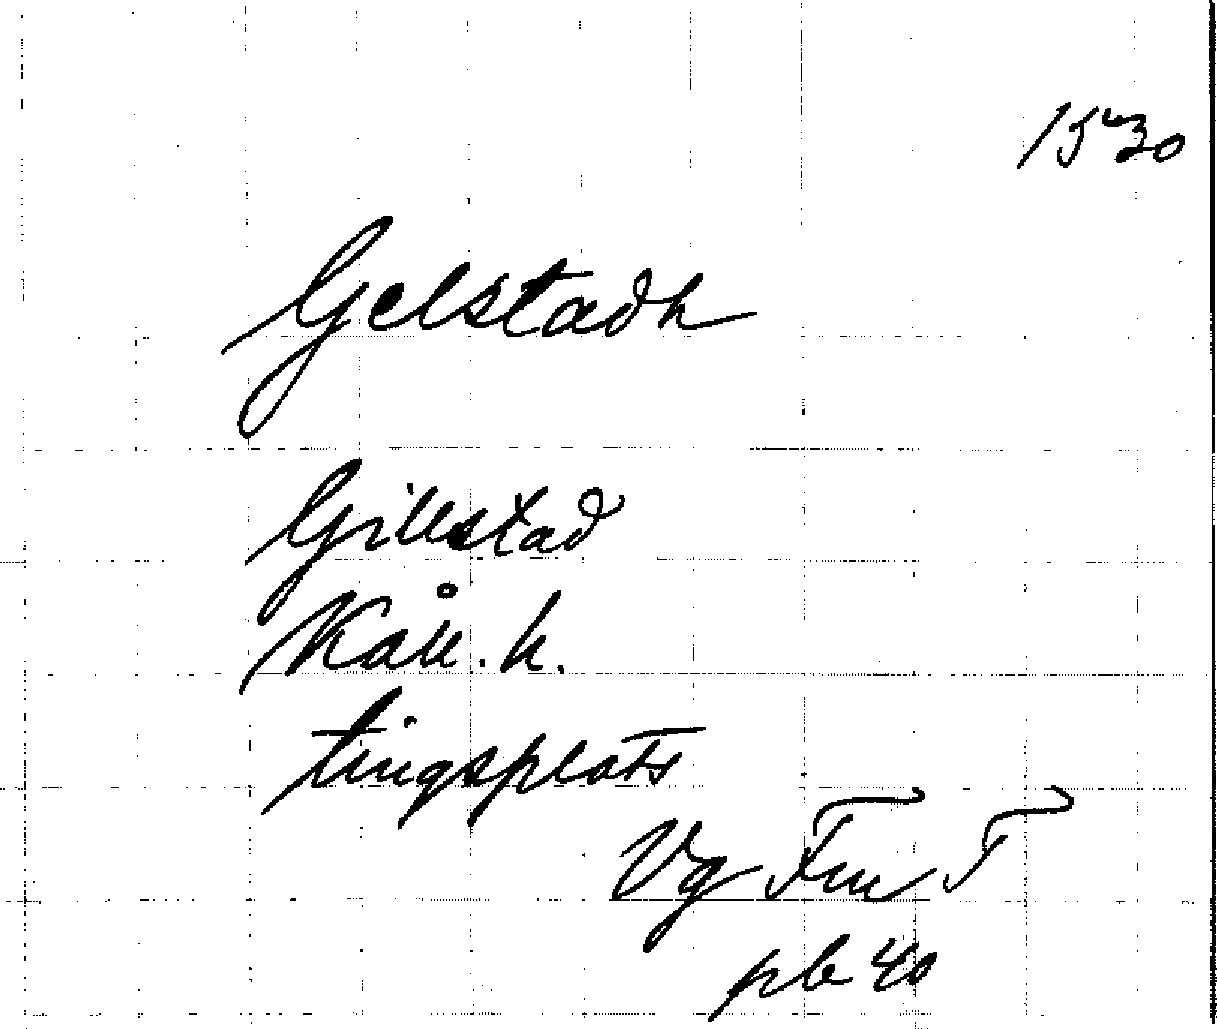 1530
Gelstadh
Gillstad
Kåll. h.
tingsplats
Vg Fnu T
pb 40